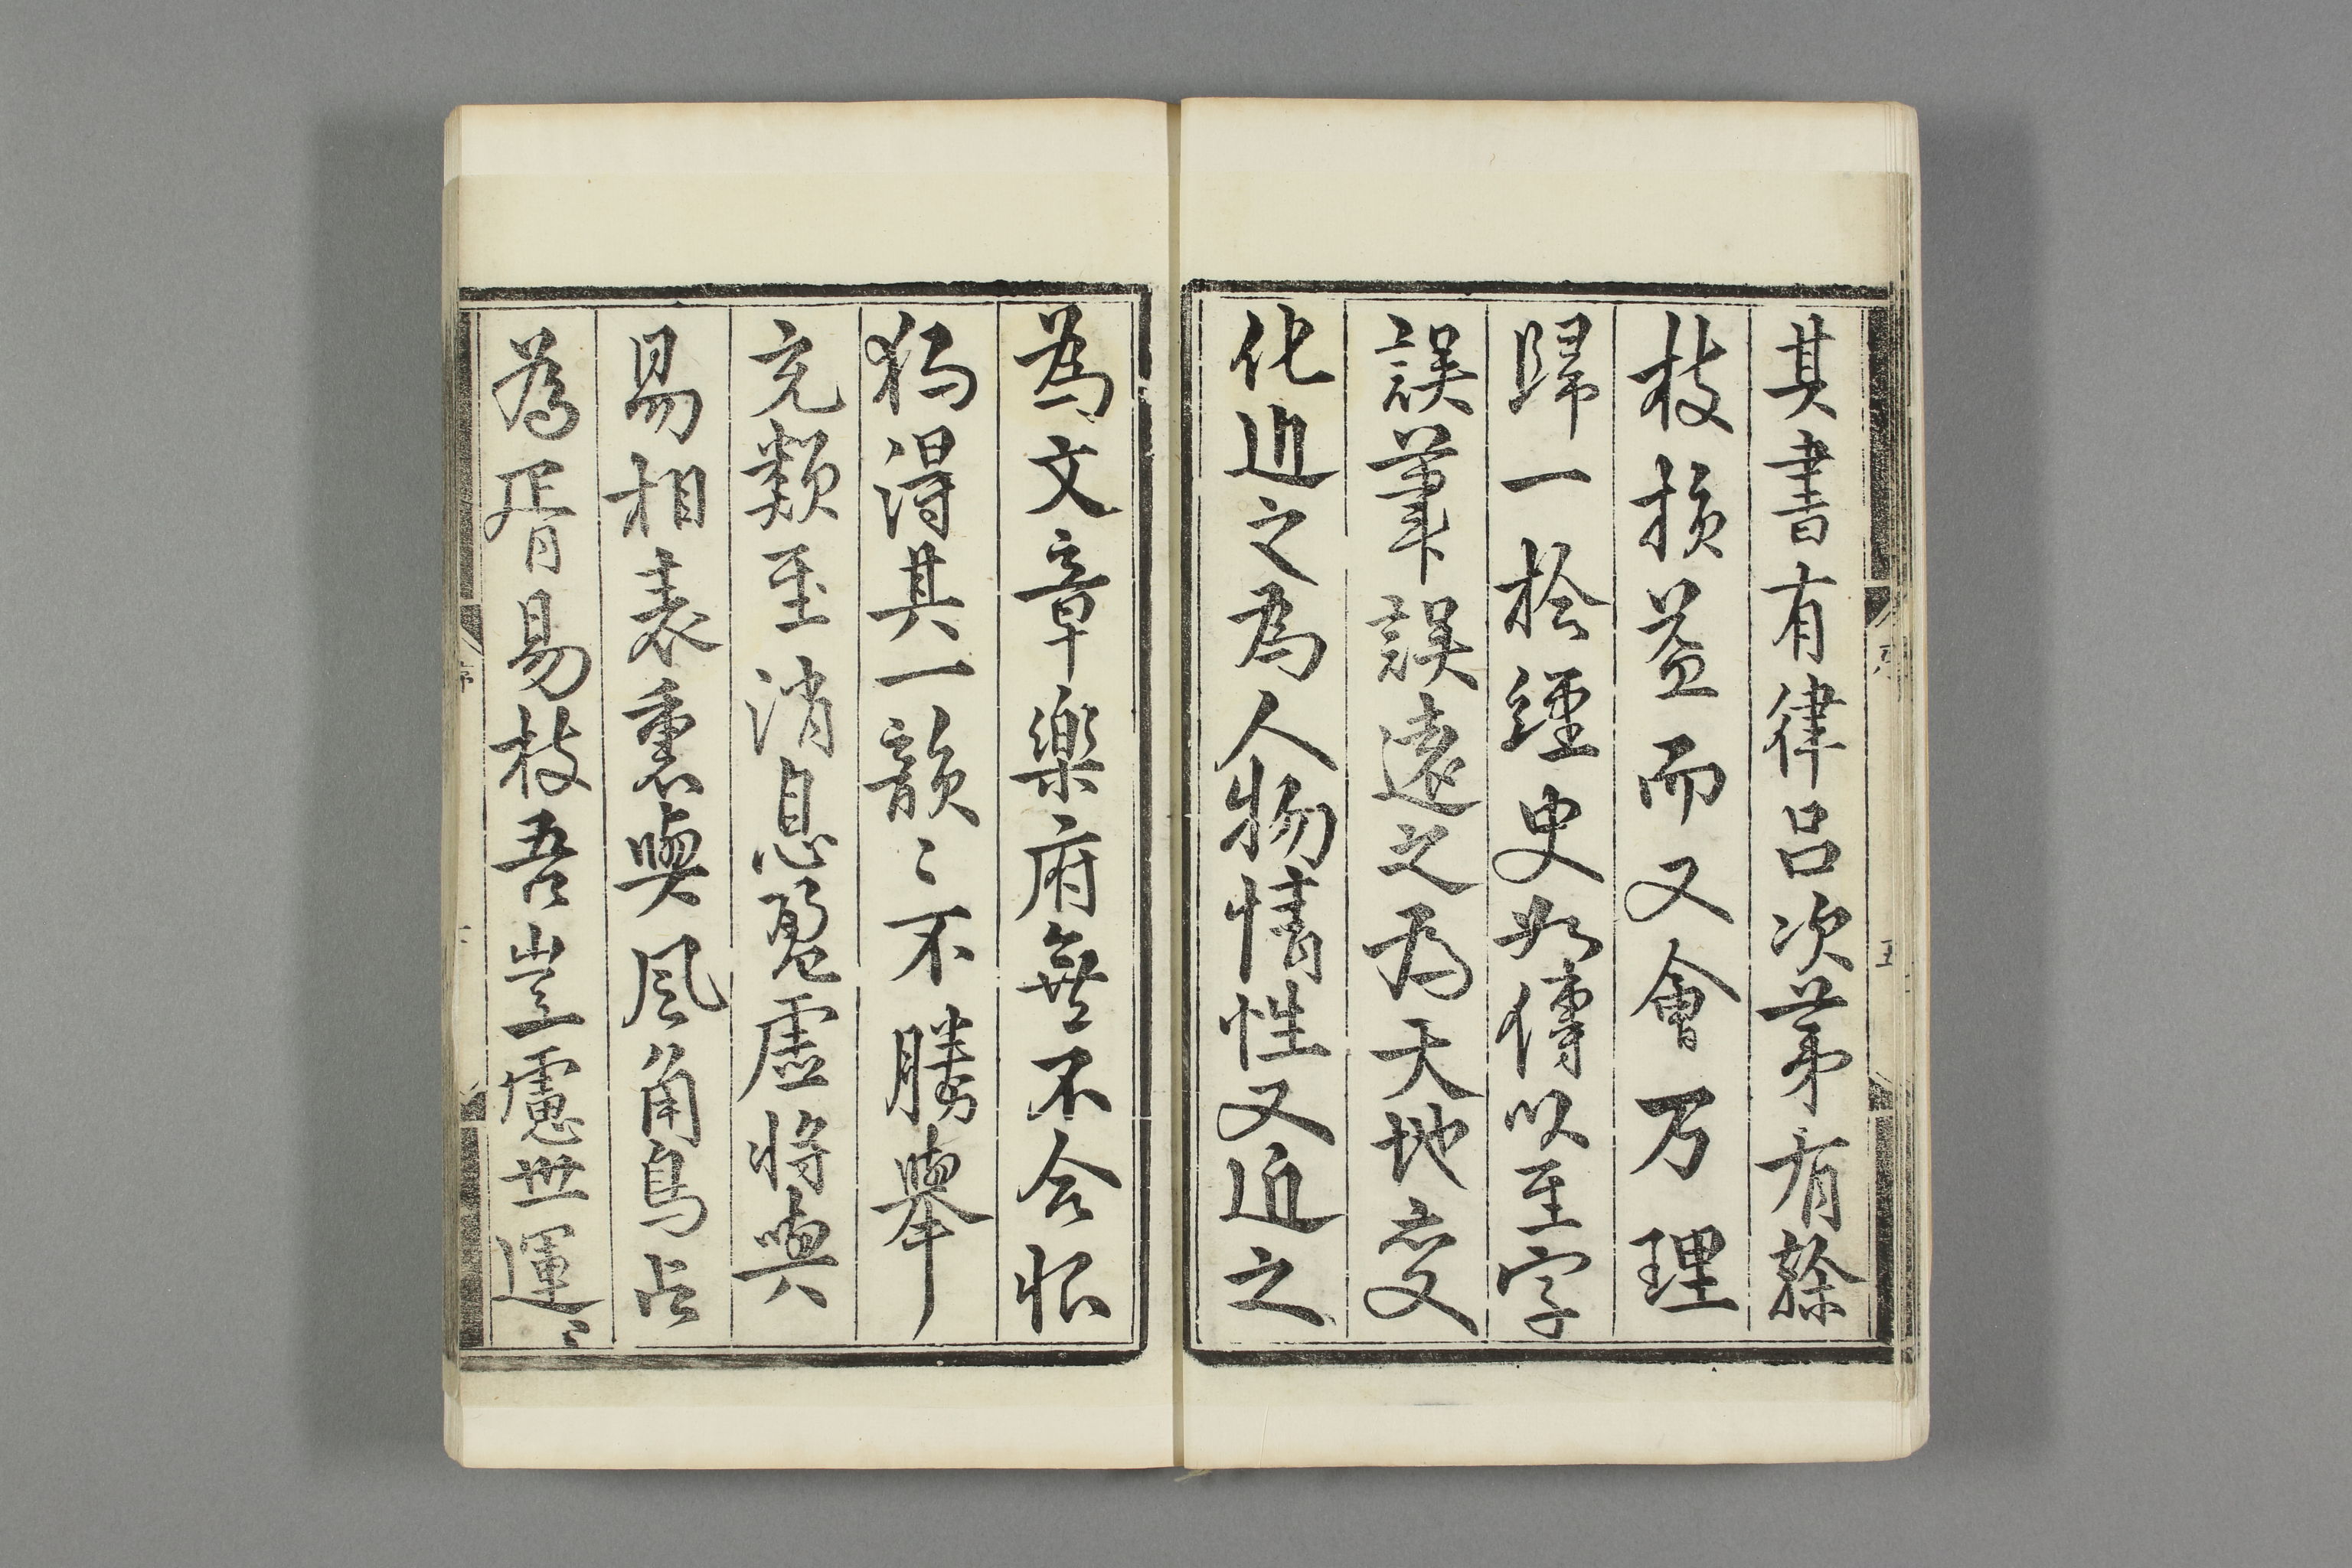 其書有律呂次第有條
枝損益而又會乃理
歸一於經史如傳以至字
誤筆誤遠之為天地變
化近之為人物情性又近之
為文章樂府無不合恨
獨得其一韻〻不勝舉
充類至消息盈虛將與
易相表裏與風角鳥占
為胥易枝吾豈慮世運〻